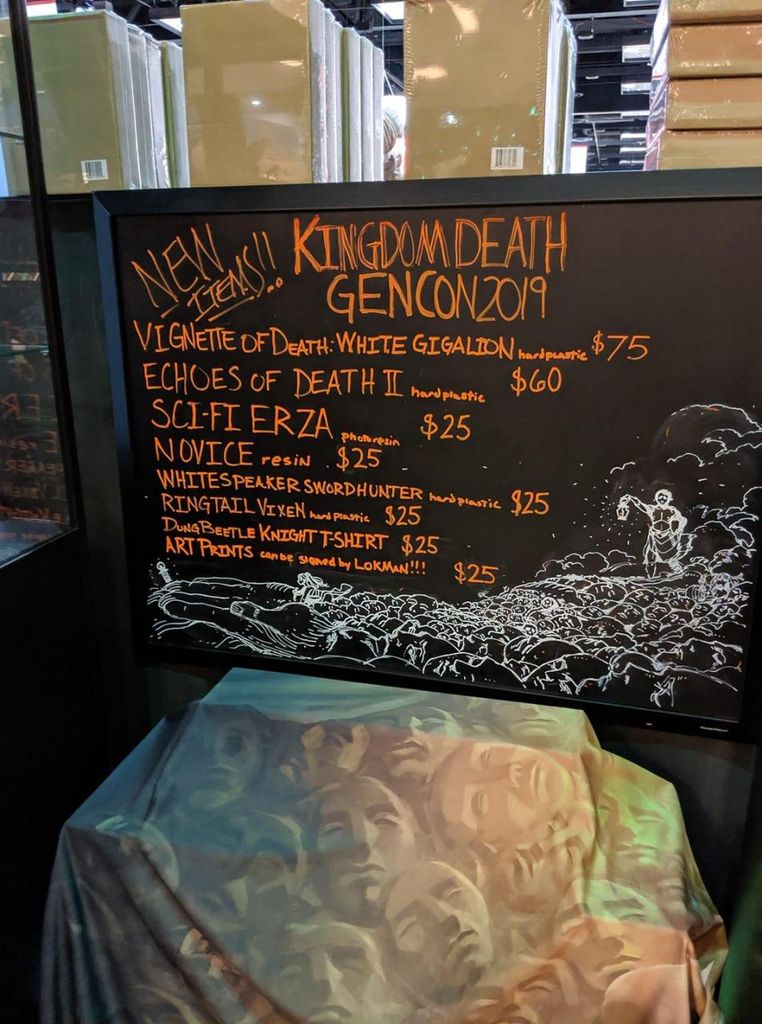 NEW ITEMS!!
KINGDOM DEATH
GENCON 2019
VIGNETTE OF DEATH: WHITE GIGALION hard plastic $75
ECHOES OF DEATH II hard plastic $60
SCI-FI ERZA photoresin $25
NOVICE resin $25
WHITESPEAKER SWORDHUNTER hard plastic $25
RINGTAIL VIXEN hard plastic $25
DUNG BEETLE KNIGHT T-SHIRT $25
ART PRINTS can be signed by LOKMAN!!! $25